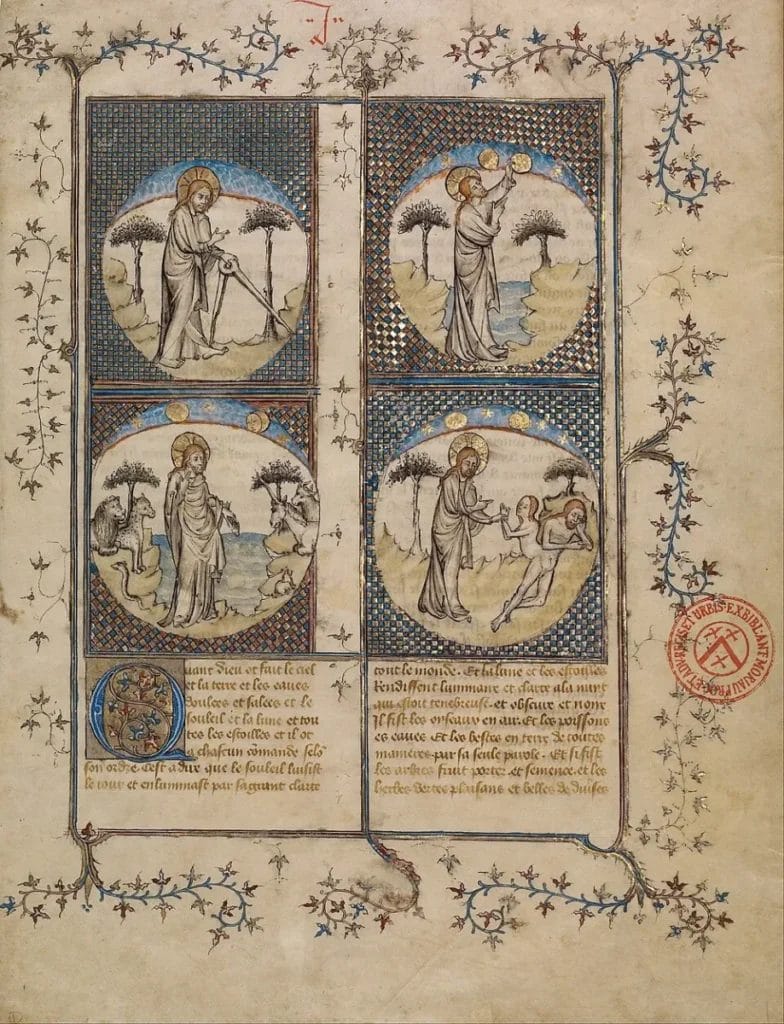 Quant dieu ot fait le ciel
et la terre et les eaues
doulces et salees et le
souleil et la lune et tou
tes les estoilles et il ot
a chascun comande selo
son ordre. Cest a dire que le souleil luisist
le iour et enluminast par sa grant clarte
tout le monde. Et la lune et les estoilles
Rendissent luminaire et clarte a la nuit
qui estoit tenebreuse et obscure et noire
Il fist les oyseaux en air. Et les poissons
es eaues. Et les bestes en terre de toutes
manieres par sa seule parole. Et si fist
les arbres fruit porter et semence et les
herbes vertes plaisans et belles de diuises
EX BIBL. ANT. MORIAU PROC. ET ADV. REGIS ET URBIS